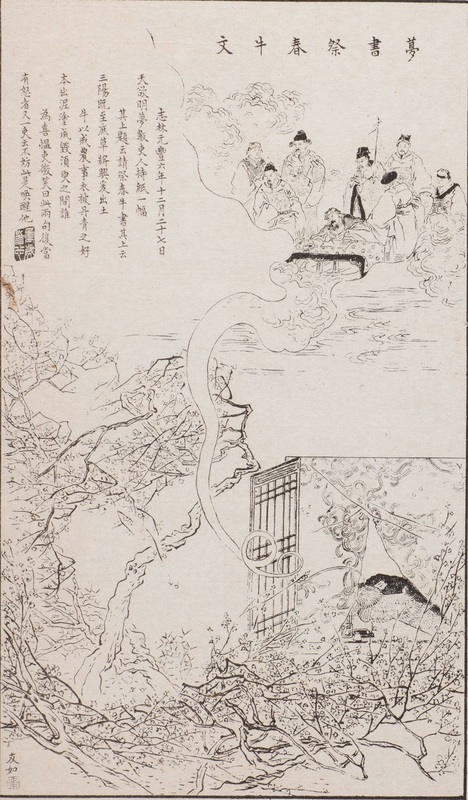 夢書祭春牛文
志林元豐六年十二月二十七日
天欲明夢數吏人持紙一幅
其上題云請祭春牛書其上云
三陽既至庶草將興爰出土
牛以戒農事衣被丹青之好
本出泥塗成毀須臾之間誰
為喜慍吏微笑曰此兩句復當
有怒者又一吏云不妨此是喚醒他
友如